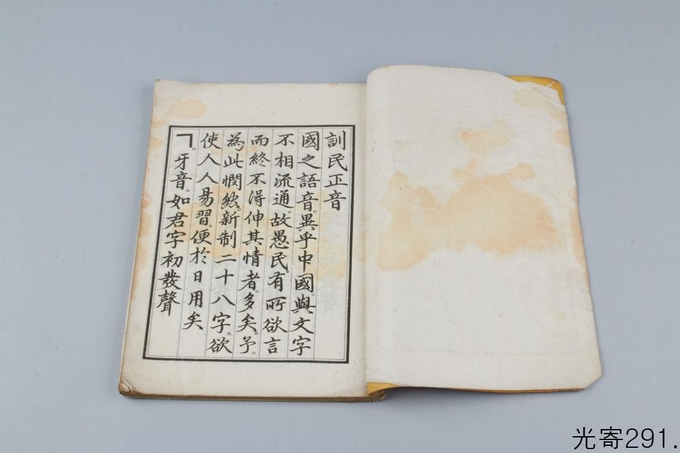 訓民正音
國之語音。異乎中國。與文字
不相流通。故愚民有所欲言
而終不得伸其情者。多矣。予。
為此憫然。新制二十八字。欲
使人人易習。便於日用矣
ㄱ。牙音。如君字初發聲
光寄291.